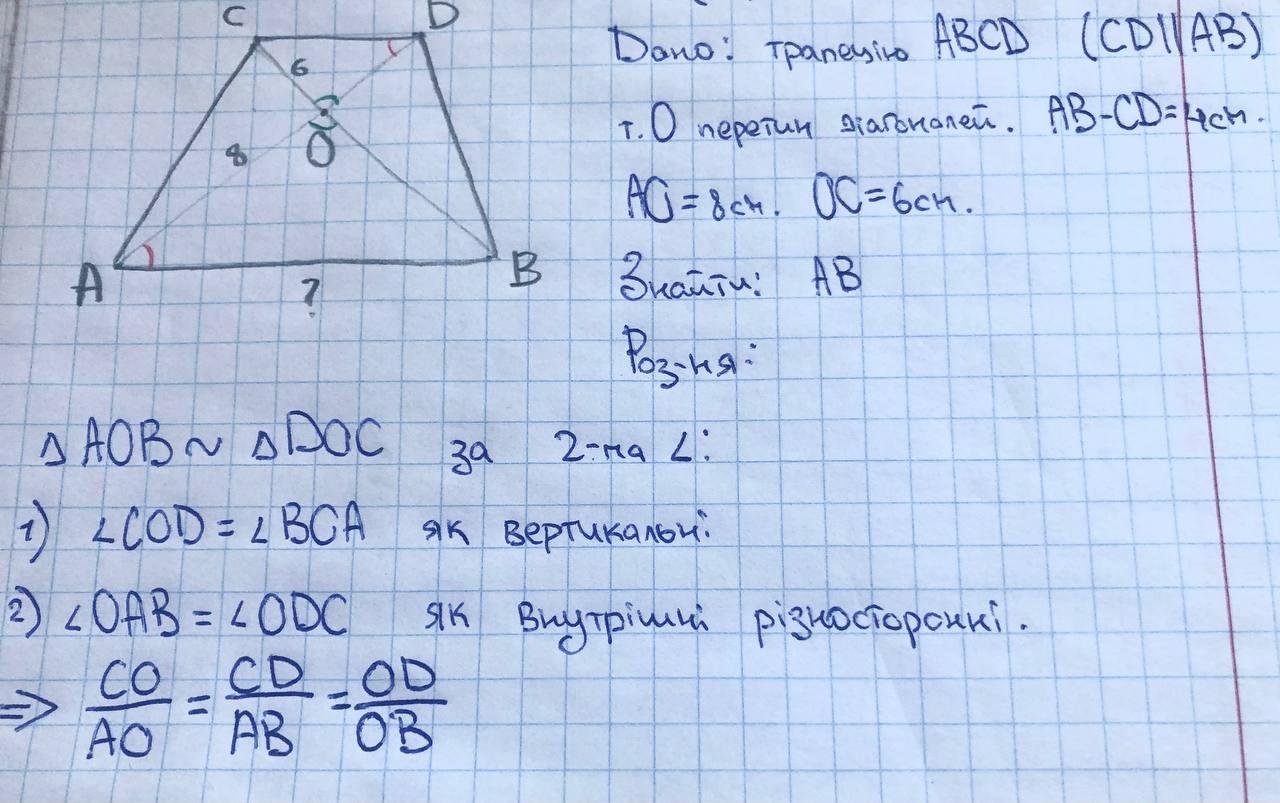 C D
Дано: трапецію ABCD (CD||AB)
6
т. O перетин діагоналей. AB-CD=4см.
8 O
AO=8см. OC=6см.
A B
?
Знайти: AB
Роз-ня:
△AOB ~ △DOC за 2-ма ∠:
1) ∠COD = ∠BOA як вертикальні
2) ∠OAB = ∠ODC як внутрішні різносторонні.
⇒ CO/AO = CD/AB = OD/OB